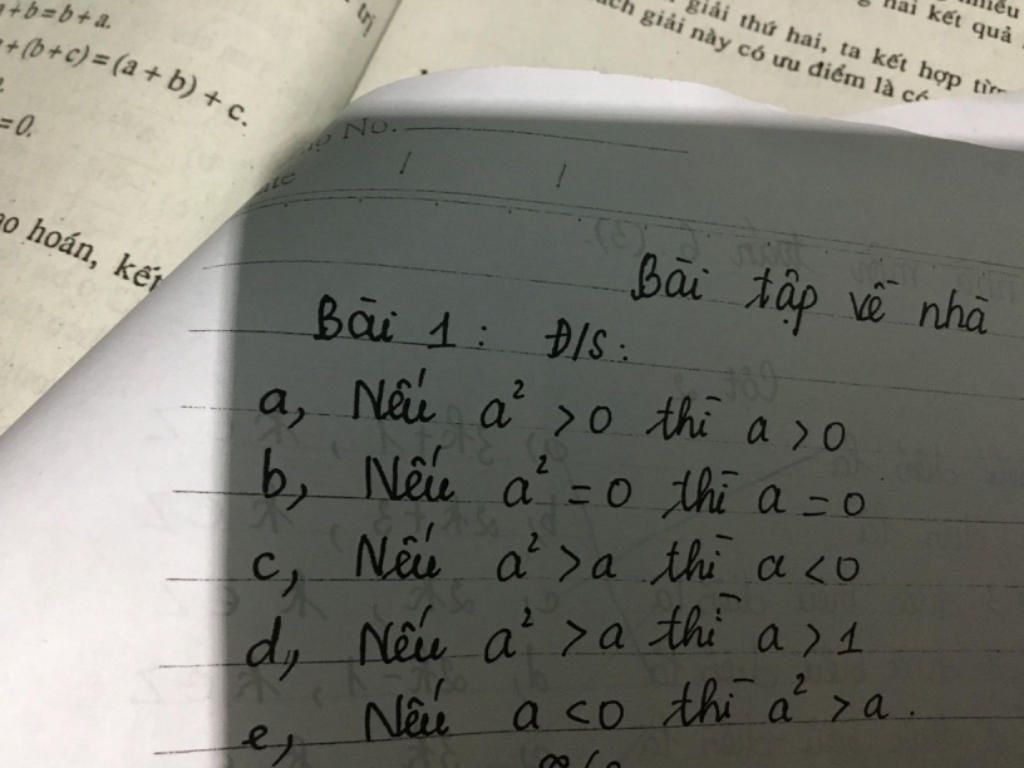 +b=b+a.
+(b+c)=(a+b)+c.
=0.
hoán, kết
trị
hai kết quả
giải thứ hai, ta kết hợp từng
giải này có ưu điểm là có
No.
Bài tập về nhà
Bài 1: Đ/S:
a, Nếu a² > 0 thì a > 0
b, Nếu a² = 0 thì a = 0
c, Nếu a² > a thì a < 0
d, Nếu a² > a thì a > 1
e, Nếu a < 0 thì a² > a.